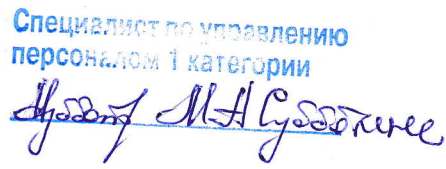 Специалист по управлению
персоналом 1 категории
М А Субботина